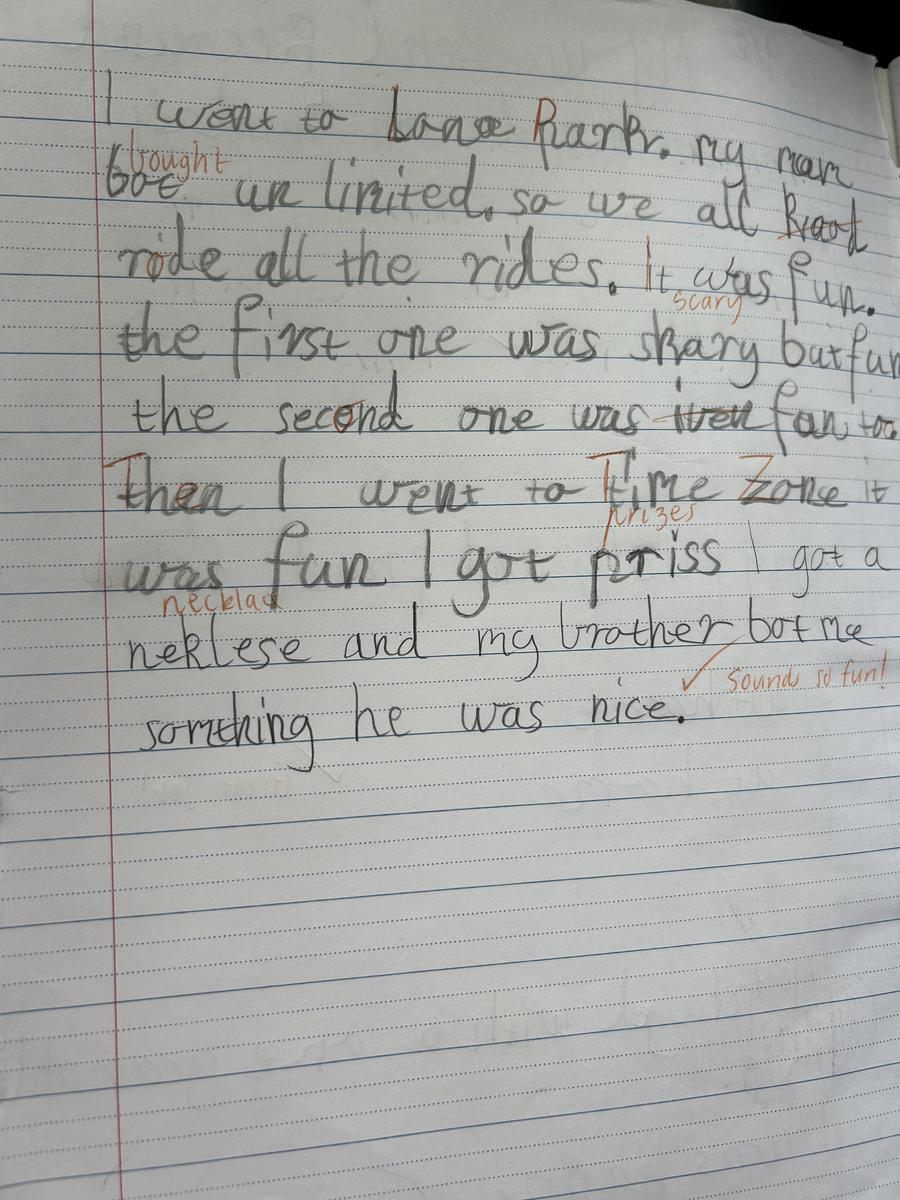 I went to Luna Park. my mum
bought
bot un limited. so we all
ride all the rides. It was fun.
scary
the first one was skary but fun
the second one was iven fun too
Then I went to Time Zone it
prizes
was fun I got priss I got a
necklac
neklese and my brother bot me
Sounds so fun!
somthing he was nice.